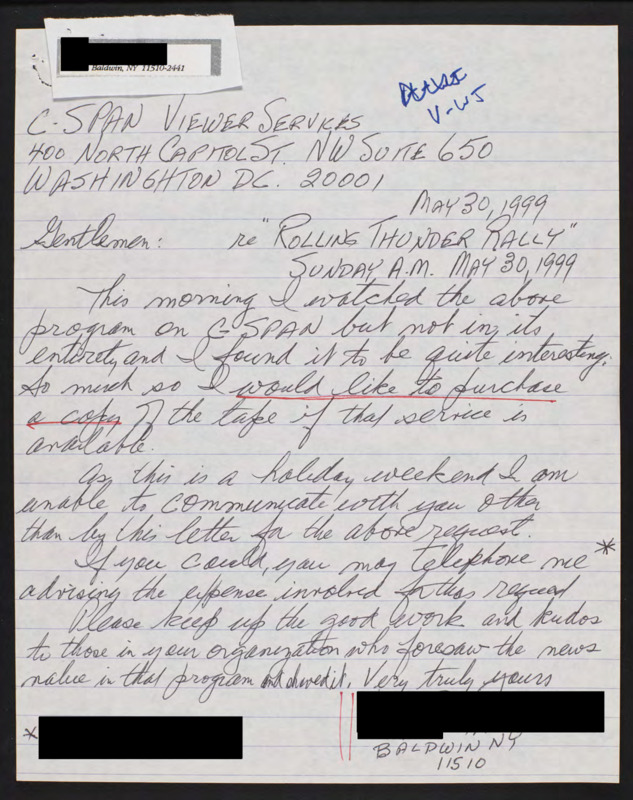 Baldwin, NY 11510-2441
V-WJ
C-SPAN VIEWER SERVICES
400 NORTH CAPITOL ST. NW SUITE 650
WASHINGHTON DC. 20001
MAY 30, 1999
Gentlemen: re "ROLLING THUNDER RALLY"
SUNDAY A.M. MAY 30, 1999
This morning I watched the above
program on C-SPAN but not in its
entirety and I found it to be quite interesting.
So much so I would like to purchase
a copy of the tape if that service is
available.
As this is a holiday weekend I am
unable to communicate with you other
than by this letter for the above request.
If you could, you may telephone me *
advising the expense involved for this request
Please keep up the good work and kudos
to those in your organization who foresaw the news
value in that program and showed it. Very truly yours
*
BALDWIN NY
11510